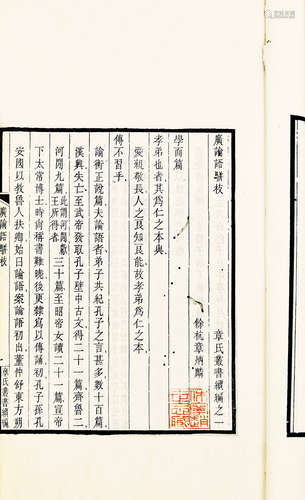 廣論語駢枝
章氏叢書續編之一
餘杭章炳麟
學而篇
孝弟也者其爲仁之本與
愛親敬長人之良知良能故孝弟爲仁之本
傳不習乎
論衡正說篇夫論語者弟子共紀孔子之言甚多數十百篇
漢興失亡至武帝發取孔子壁中古文得二十一篇齊魯二
河閒九篇此謂河閒獻王所得者三十篇至昭帝女讀二十一篇宣帝
下太常博士時尚稱書難曉後更隸寫以傳誦初孔子孫孔
安國以教魯人扶卿始曰論語案論語初自董仲舒東方朔
廣論語駢枝
章氏叢書續編